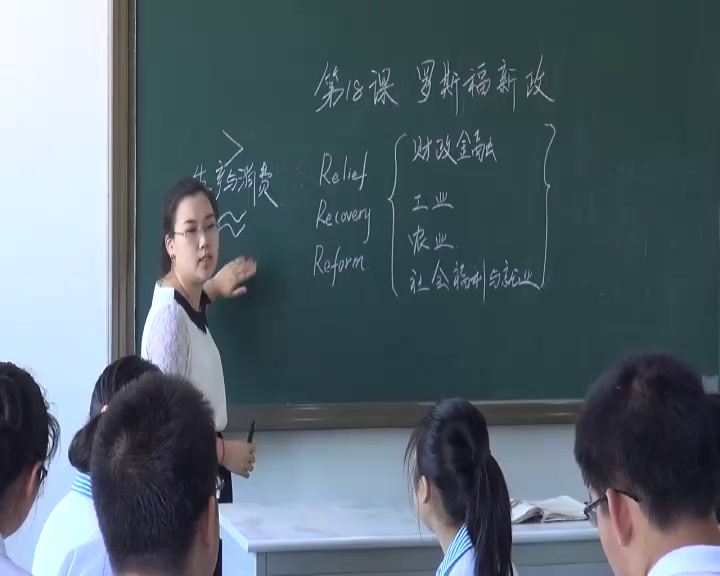 第18课 罗斯福新政
>
生产与消费
≈
Relief
Recovery
Reform
财政金融
工业
农业
社会福利与就业